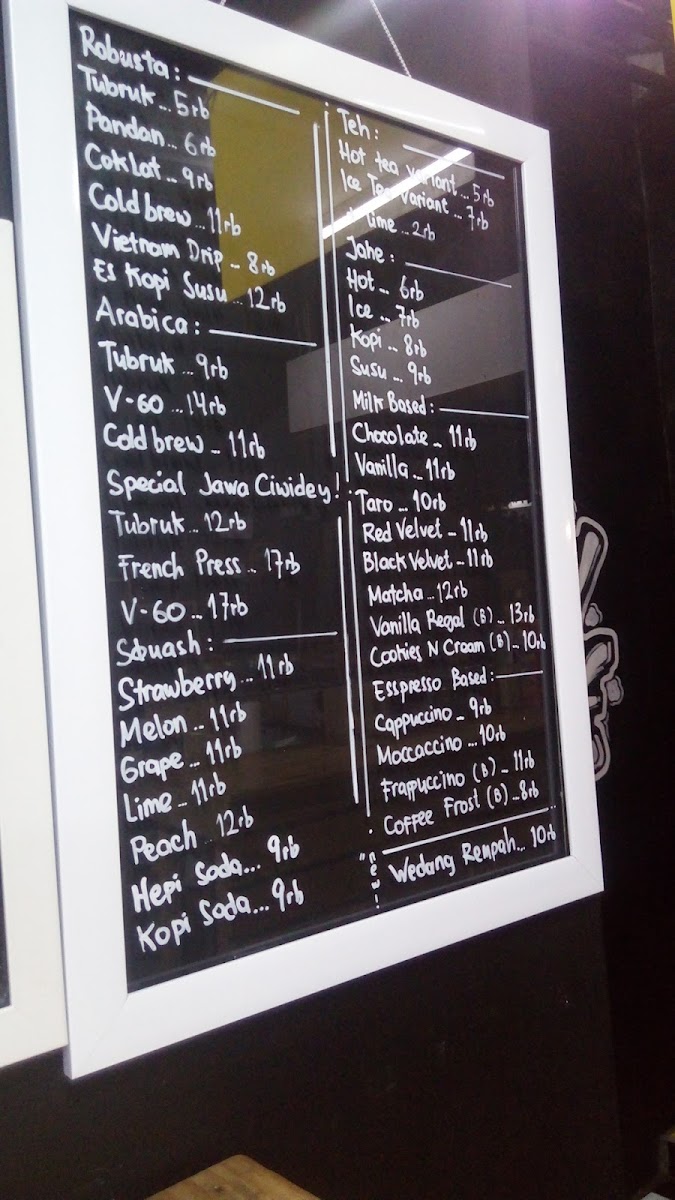 Robusta :
Tubruk ... 5rb
Pandan ... 6rb
Coklat ... 9rb
Cold brew ... 11rb
Vietnam Drip .. 8rb
Es Kopi Susu ... 12rb
Arabica :
Tubruk ... 9rb
V-60 ... 14rb
Cold brew .. 11rb
Special Jawa Ciwidey!
Tubruk ... 12rb
French Press .. 17rb
V-60 ... 17rb
Squash :
Strawberry ... 11rb
Melon .. 11rb
Grape ... 11rb
Lime .. 11rb
Peach .. 12rb
Hepi Soda... 9rb
Kopi Soda... 9rb
Teh :
Hot tea variant ... 5rb
Ice Tea Variant ... 7rb
lime ... 2rb
Jahe :
Hot ... 6rb
Ice ... 7rb
Kopi ... 8rb
Susu ... 9rb
Milk Based :
Chocolate .. 11rb
Vanilla .. 11rb
Taro ... 10rb
Red Velvet - 11rb
Black Velvet - 11rb
Matcha ... 12rb
Vanilla Regal (B) ... 13rb
Cookies N Cream (B) .. 10rb
Esspresso Based :
Cappuccino .. 9rb
Moccaccino ... 10rb
Frappuccino (B) .. 11rb
Coffee Frost (B) ... 8rb
"new!
Wedang Rempah... 10rb